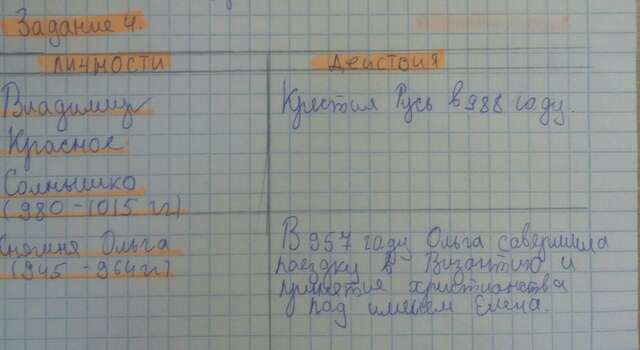 Задание 4.
Личности Действия
Владимир Крестил Русь в 988 году.
Красное
Солнышко
(980-1015 гг)
Княгиня Ольга В 957 году Ольга совершила
(945-964гг) поездку в Византию и
принятие христианства
под именем Елена.